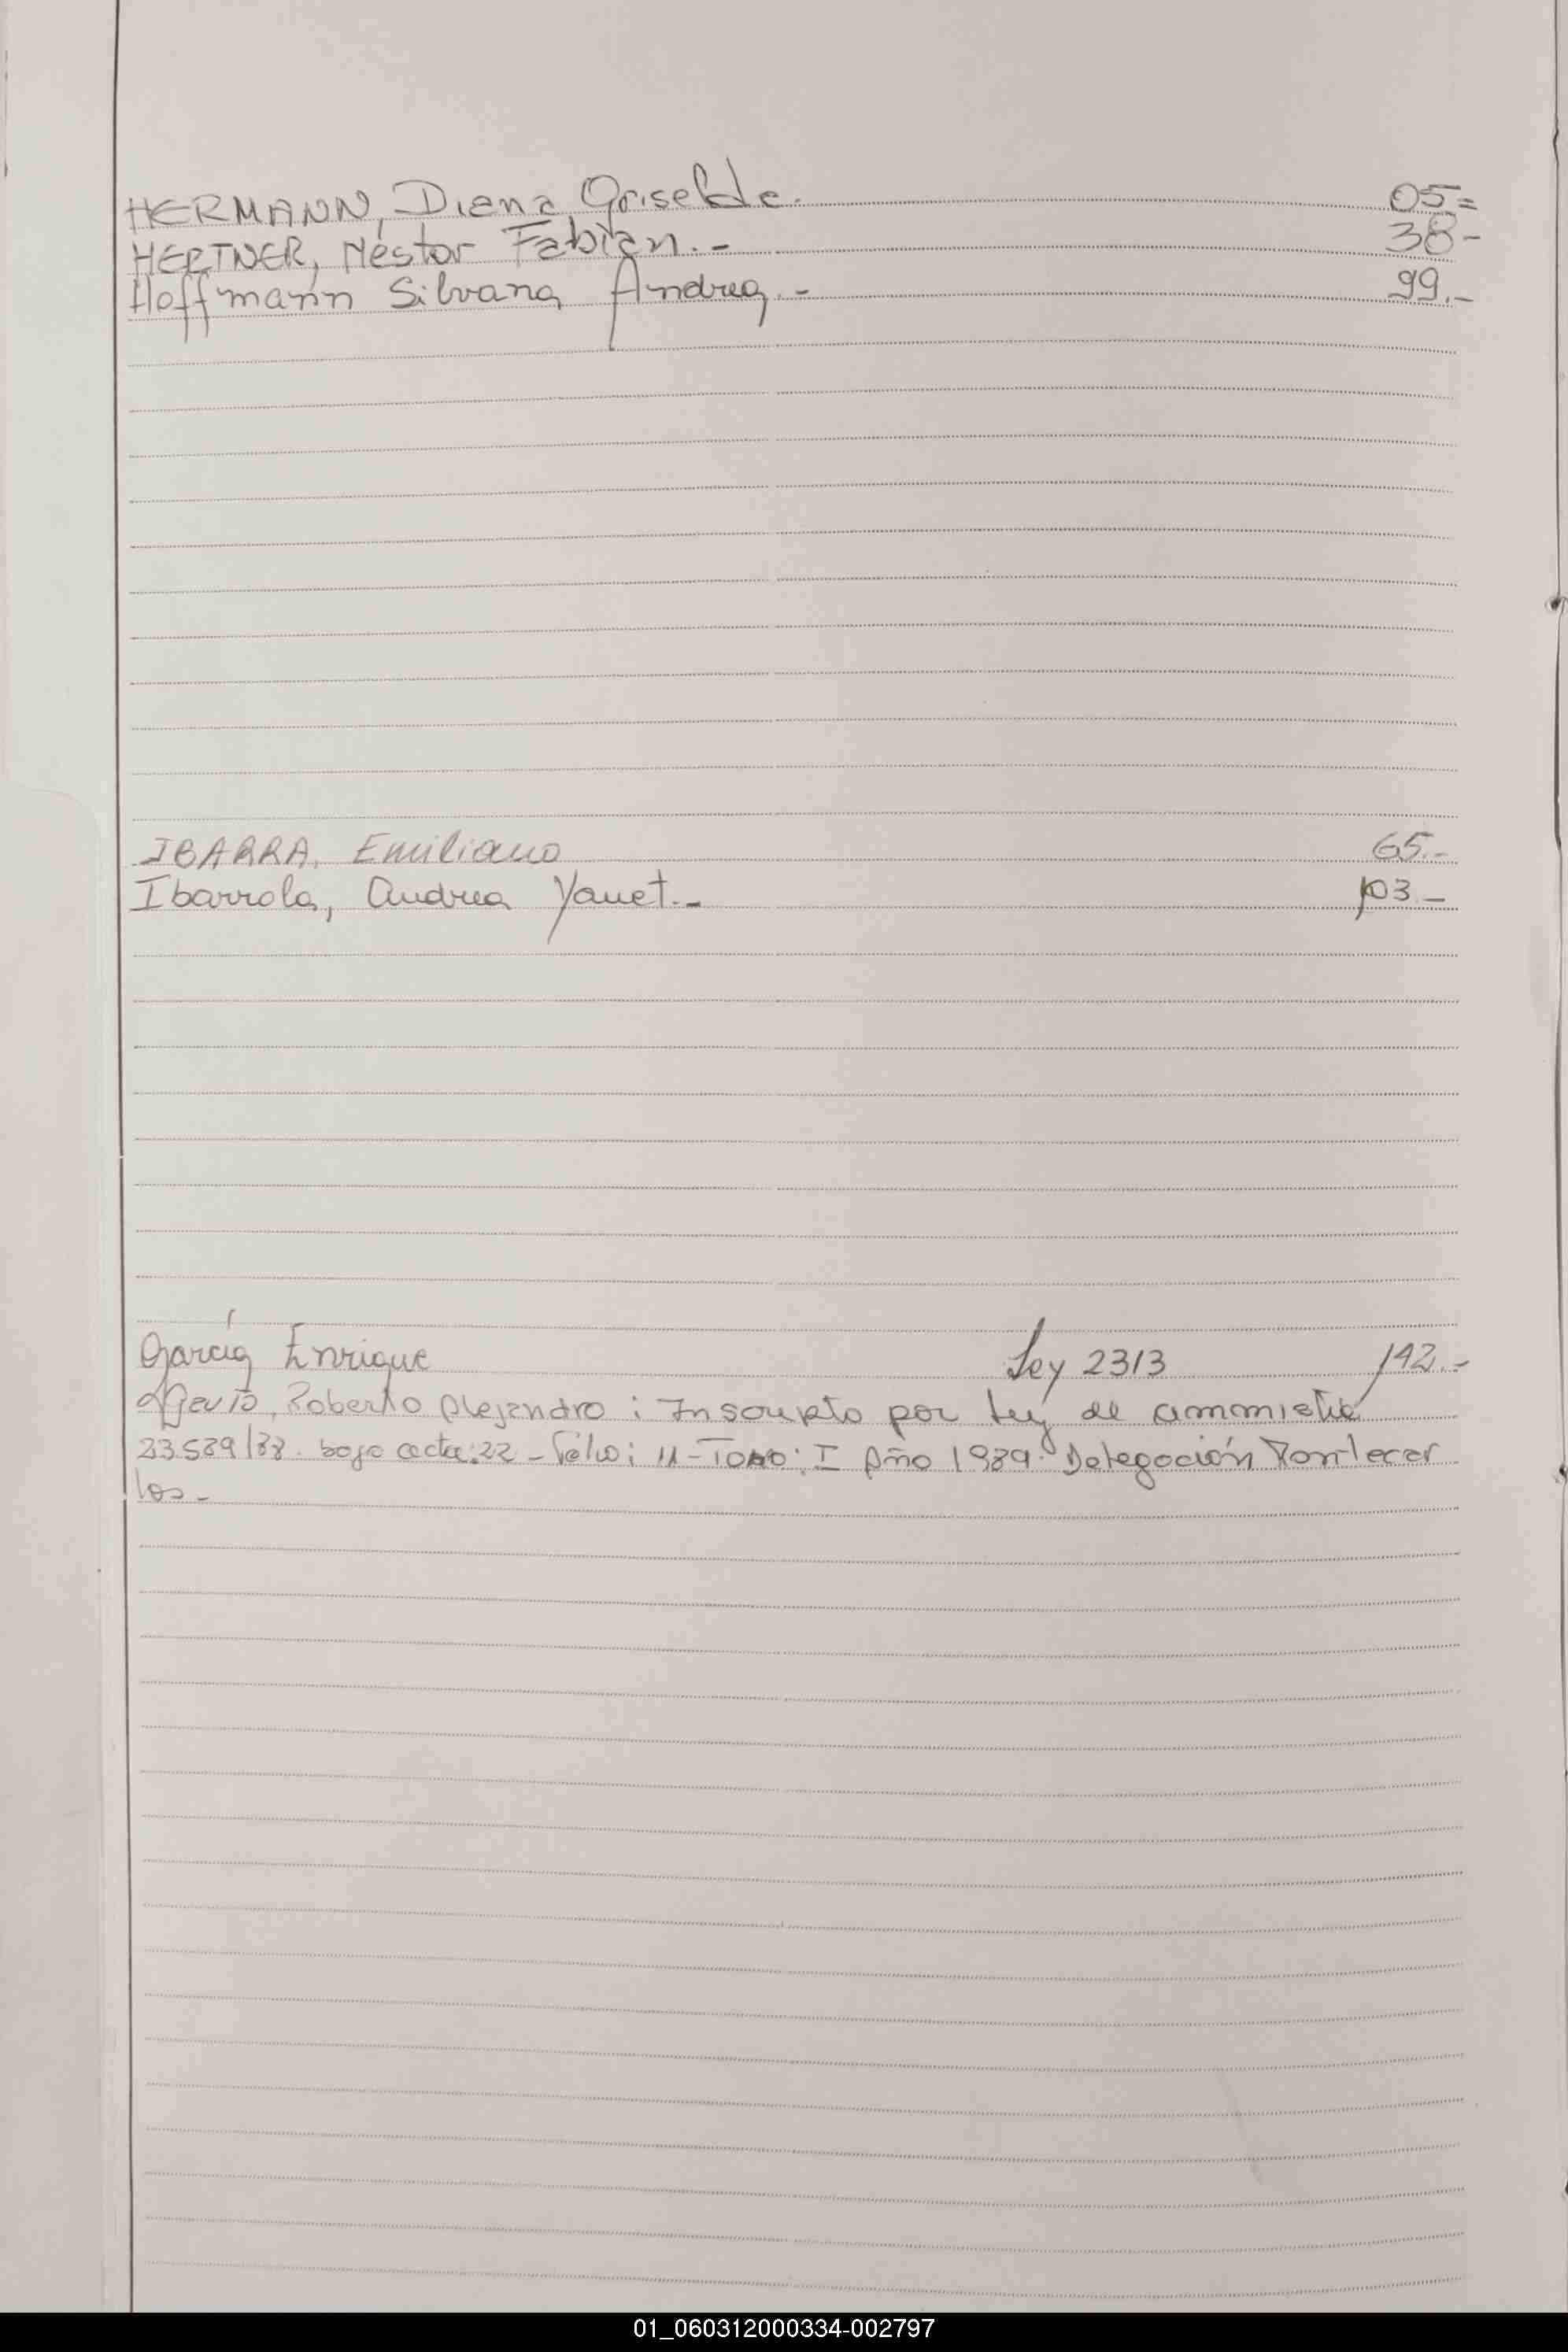 HERMANN, Diana Griselda. 05=
HERTNER, Néstor Fabián.- 38-
Hoffmann Silvana Andrea.- 99.-
IBARRA, Emiliano 65.-
Ibarrola, Andrea Yanet.- 103.-
García Enrique Ley 2313 142.-
Roberto Alejandro: Inscripto por Ley de ammistia
23.589/88. bajo acta: 22 - Folio: 11 - Tomo: I Año 1989. Delegación
los-
01_060312000334-002797